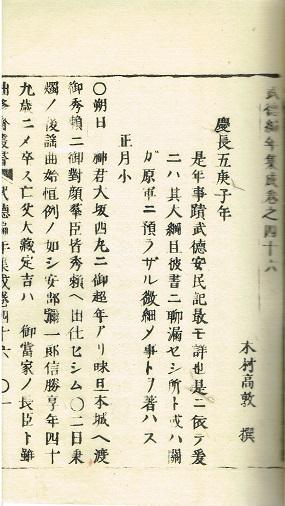 武德編年集成卷之四十六
木村高敦 撰
慶長五庚子年
是年事蹟武德安民記最モ詳也是ニ依テ爰
ニハ其大綱且彼書ニ聊漏セシ所ト或ハ關
ガ原軍ニ預ラザル微細ノ事トヲ著ハス
正月小
〇朔日 神君大坂西丸ニ御超年アリ昧旦本城ヘ渡
御秀賴ニ御對顔羣臣皆秀賴ヘ出仕セシム〇二日秉
燭ノ後謠曲始恒例ノ如シ安部彌一郎信勝享年四十
九歳ニメ卒ス亡父大藏定吉ハ 御當家ノ長臣ト雖
武德編年集成卷四十六 〇一